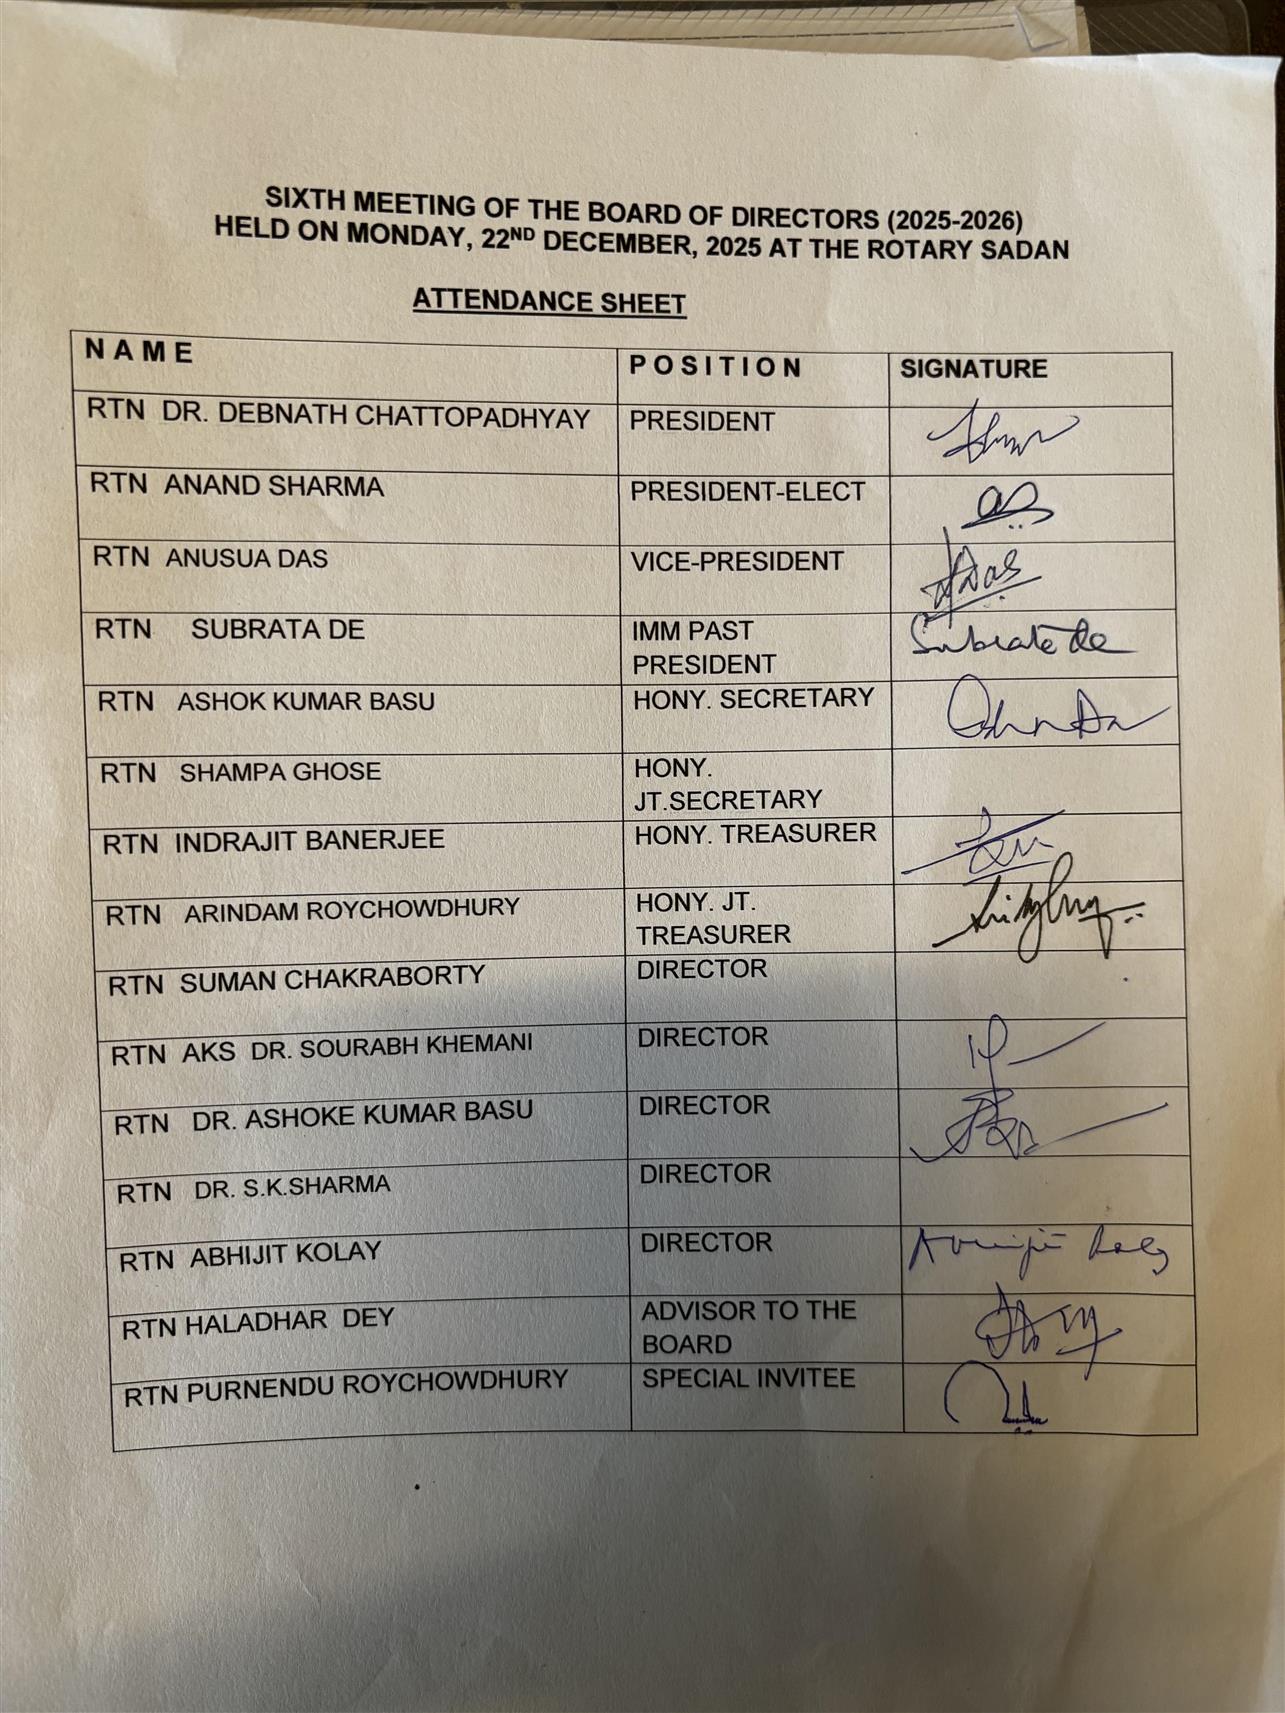 SIXTH MEETING OF THE BOARD OF DIRECTORS (2025-2026)
HELD ON MONDAY, 22ND DECEMBER, 2025 AT THE ROTARY SADAN
ATTENDANCE SHEET
N A M E P O S I T I O N SIGNATURE
RTN DR. DEBNATH CHATTOPADHYAY PRESIDENT
RTN ANAND SHARMA PRESIDENT-ELECT
RTN ANUSUA DAS VICE-PRESIDENT ADas
RTN SUBRATA DE IMM PAST Subrata De
PRESIDENT
RTN ASHOK KUMAR BASU HONY. SECRETARY
RTN SHAMPA GHOSE HONY.
JT.SECRETARY
RTN INDRAJIT BANERJEE HONY. TREASURER
RTN ARINDAM ROYCHOWDHURY HONY. JT.
TREASURER
RTN SUMAN CHAKRABORTY DIRECTOR
RTN AKS DR. SOURABH KHEMANI DIRECTOR
RTN DR. ASHOKE KUMAR BASU DIRECTOR
RTN DR. S.K.SHARMA DIRECTOR
RTN ABHIJIT KOLAY DIRECTOR
RTN HALADHAR DEY ADVISOR TO THE
BOARD
RTN PURNENDU ROYCHOWDHURY SPECIAL INVITEE